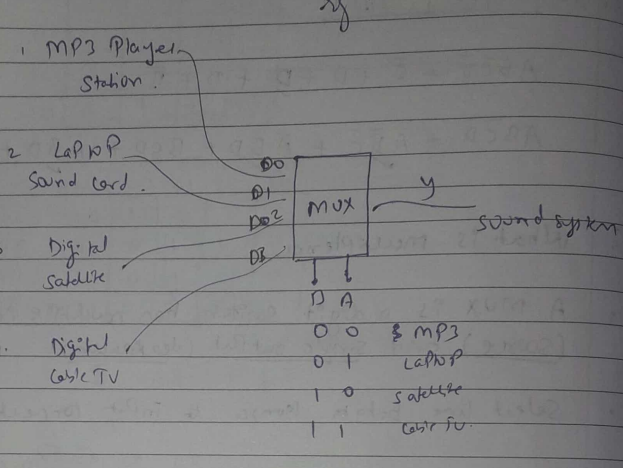 1 MP3 Player
Station.
2 LaPtoP
Sound Card.
Digital
Satellite
Digital
Cable TV
D0
D1
D2
D3
MUX
y
Sound System
B A
0 0 MP3
0 1 LaPtoP
1 0 Satellite
1 1 Cable TV.